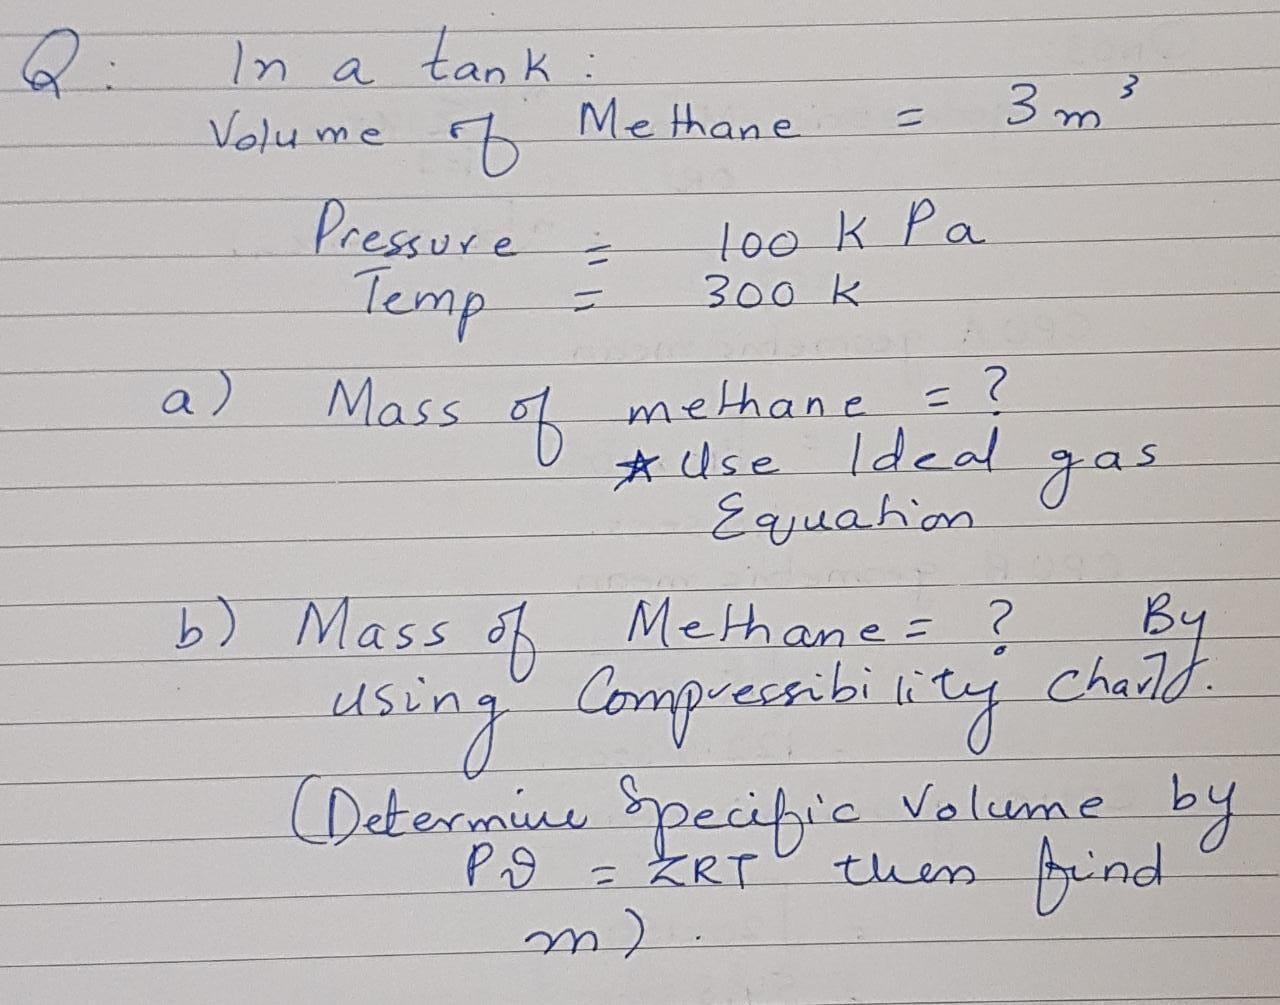 Q: In a tank:
Volume of Methane = 3 m³
Pressure = 100 k Pa
Temp = 300 k
a) Mass of methane = ?
* Use Ideal gas
Equation
b) Mass of Methane = ? By
using Compressibility chart.
(Determine Specific Volume by
Pϑ = ZRT then find
m).